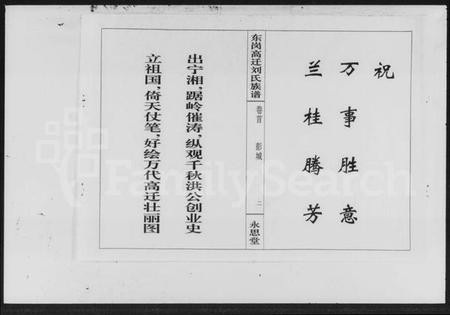 祝
万事胜意
兰桂腾芳
东岗高迁刘氏族谱
卷首
彭城
二
永思堂
出宁湘，踞岭催涛，纵观千秋洪公创业史
立祖国，倚天仗笔，好绘万代高迁壮丽图
FamilySearch